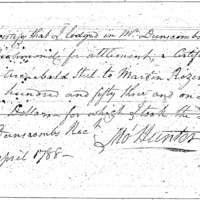 that I lodged in Mr. Dunscombs
for settlement, a Certifi
Archibald Steel to Martin
hundred and fifty three and on
Dollars for which I took the
Dunscombs Rec
Jno Hunter
April 1788 —